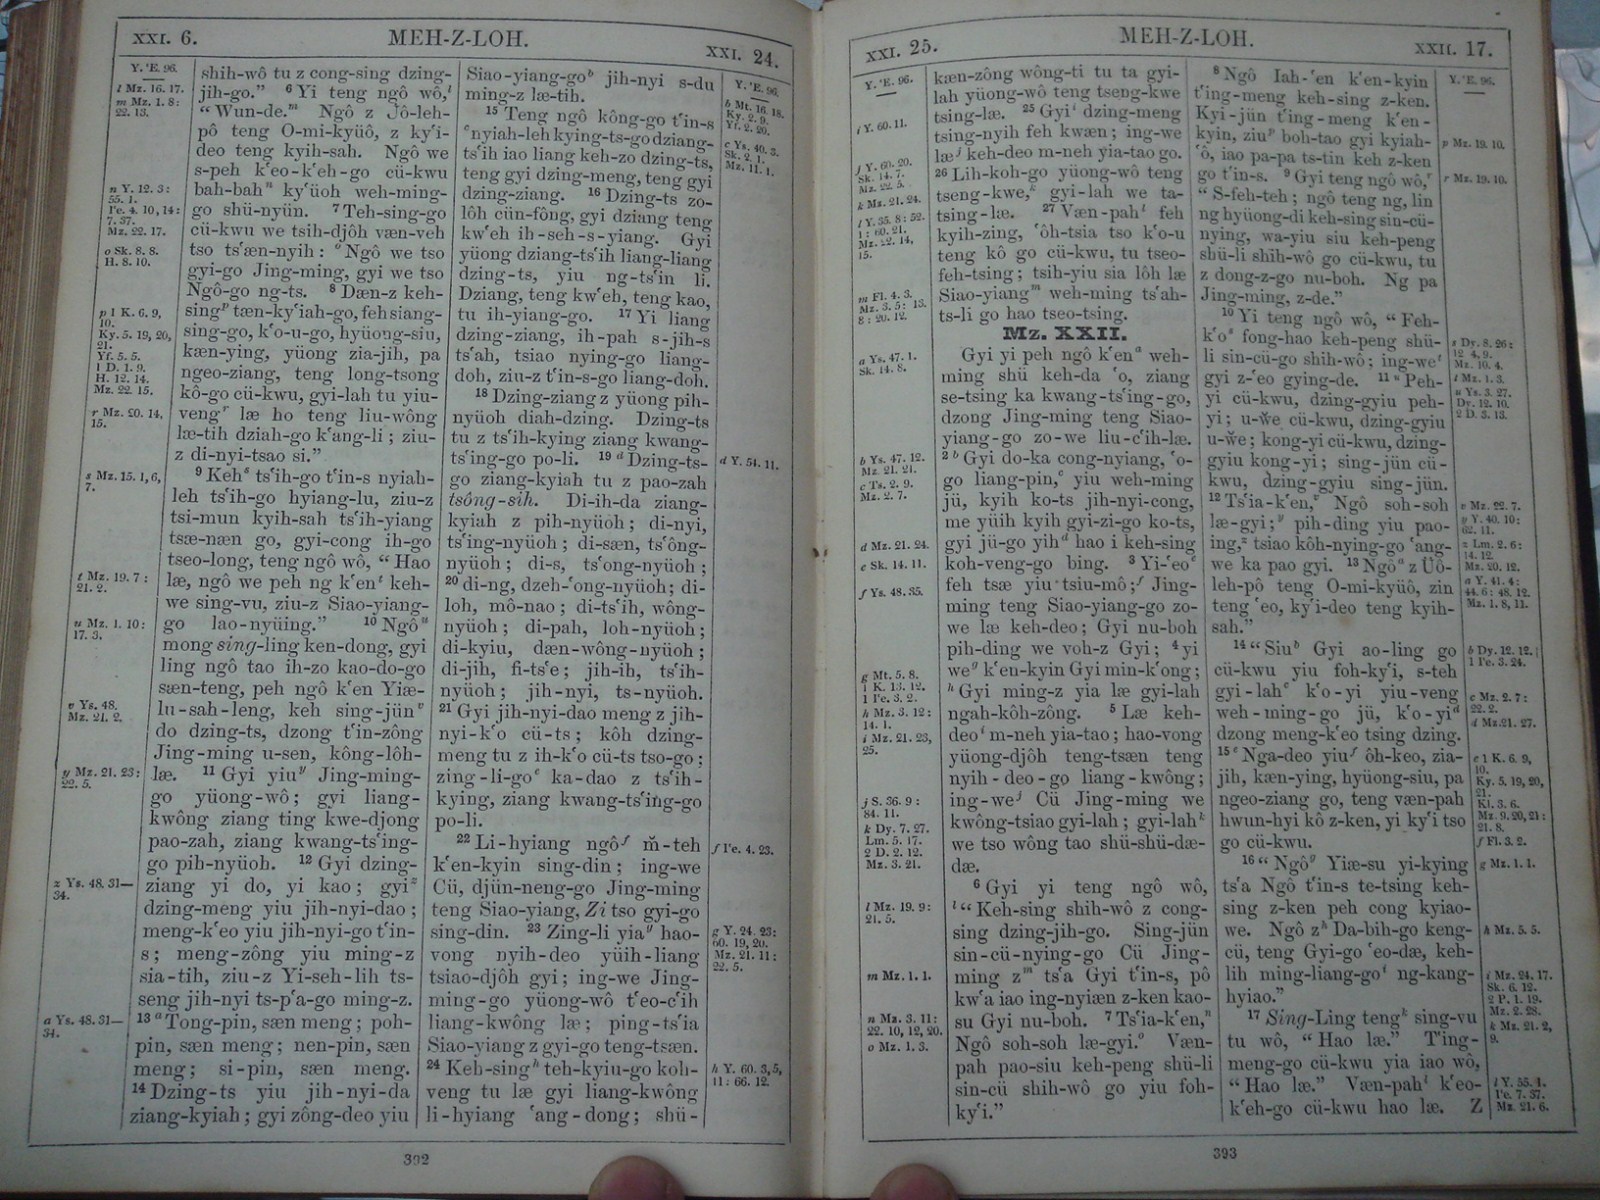 XXI. 6.
MEH-Z-LOH.
XXI. 24.
Y. 'E. 96.
l Mz. 16. 17.
m Mz. 1. 8:
22. 13.
n Y. 12. 3:
55. 1.
Pe. 4. 10, 14:
7. 37.
Mz. 22. 17.
o Sk. 8. 8.
H. 8. 10.
p 1 K. 6. 9,
10.
Ky. 5. 19, 20,
21.
Yf. 5. 5.
1 D. 1. 9.
H. 12. 14.
Mz. 22. 15.
r Mz. 20. 14,
15.
s Mz. 15. 1, 6,
7.
t Mz. 19. 7:
21. 2.
u Mz. 1. 10:
17. 3.
v Ys. 48.
Mz. 21. 2.
y Mz. 21. 23:
22. 5.
z Ys. 48. 31—
34.
a Ys. 48. 31—
34.
shih-wô tu z cong-sing dzing-
jih-go.” 6 Yi teng ngô wô,l
“Wun-de.m Ngô z Ô-leh-
pô teng O-mi-kyüô, z ky'i-
deo teng kyih-sah. Ngô we
s-peh k'eo-k'eh-go cü-kwu
bah-bahn ky'üoh weh-ming-
go shü-nyün. 7 Teh-sing-go
cü-kwu we tsih-djôh væn-veh
tso ts'æn-nyih: o Ngô we tso
gyi-go Jing-ming, gyi we tso
Ngô-go ng-ts. 8 Dæn-z keh-
singp tæn-ky'iah-go, feh siang-
sing-go, k'o-u-go, hyüong-siu,
kæn-ying, yüong zia-jih, pa
ngeo-ziang, teng long-tsong
kô-go cü-kwu, gyi-lah tu yiu-
vengr læ ho teng liu-wông
læ-tih dziah-go k'ang-li; ziu-
z di-nyi-tsao si.”
9 Kehs ts'ih-go t'in-s nyiah-
leh ts'ih-go hyiang-lu, ziu-z
tsi-mun kyih-sah ts'ih-yiang
tsæ-næn go, gyi-cong ih-go
tseo-long, teng ngô wô, “Hao
læ, ngô we peh ng k'ent keh-
we sing-vu, ziu-z Siao-yiang-
go lao-nyüing.” 10 Ngôu
mong sing-ling ken-dong, gyi
ling ngô tao ih-zo kao-do-go
sæn-teng, peh ngô k'en Yiæ-
lu-sah-leng, keh sing-jünv
do dzing-ts, dzong t'in-zông
Jing-ming u-sen, kông-lôh-
læ. 11 Gyi yiuy Jing-ming-
go yüong-wô; gyi liang-
kwông ziang ting kwe-djong
pao-zah, ziang kwang-ts'ing-
go pih-nyüoh. 12 Gyi dzing-
ziang yi do, yi kao; gyiz
dzing-meng yiu jih-nyi-dao;
meng-k'eo yiu jih-nyi-go t'in-
s; meng-zông yiu ming-z
sia-tih, ziu-z Yi-seh-lih ts-
seng jih-nyi ts-p'a-go ming-z.
13 a Tong-pin, sæn meng; poh-
pin, sæn meng; nen-pin, sæn
meng; si-pin, sæn meng.
14 Dzing-ts yiu jih-nyi-da
ziang-kyiah; gyi zông-deo yiu
Siao-yiang-gob jih-nyi s-du
ming-z læ-tih.
15 Teng ngô kông-go t'in-s
cnyiah-leh kying-ts-go dziang-
ts'ih iao liang keh-zo dzing-ts,
teng gyi dzing-meng, teng gyi
dzing-ziang. 16 Dzing-ts zo-
lôh cün-fông, gyi dziang teng
kw'eh ih-seh-s-yiang. Gyi
yüong dziang-ts'ih liang-liang
dzing-ts, yiu ng-ts'in li.
Dziang, teng kw'eh, teng kao,
tu ih-yiang-go. 17 Yi liang
dzing-ziang, ih-pah s-jih-s
ts'ah, tsiao nying-go liang-
doh, ziu-z t'in-s-go liang-doh.
18 Dzing-ziang z yüong pih-
nyüoh diah-dzing. Dzing-ts
tu z ts'ih-kying ziang kwang-
ts'ing-go po-li. 19 d Dzing-ts-
go ziang-kyiah tu z pao-zah
tsông-sih. Di-ih-da ziang-
kyiah z pih-nyüoh; di-nyi,
ts'ing-nyüoh; di-sæn, ts'ông-
nyüoh; di-s, ts'ong-nyüoh;
20 di-ng, dzeh-'ong-nyüoh; di-
loh, mô-nao; di-ts'ih, wông-
nyüoh; di-pah, loh-nyüoh;
di-kyiu, dæn-wông-nyüoh;
di-jih, fi-ts'e; jih-ih, ts'ih-
nyüoh; jih-nyi, ts-nyüoh.
21 Gyi jih-nyi-dao meng z jih-
nyi-k'o cü-ts; kôh dzing-
meng tu z ih-k'o cü-ts tso-go;
zing-li-goe ka-dao z ts'ih-
kying, ziang kwang-ts'ing-go
po-li.
22 Li-hyiang ngôf m̆-teh
k'en-kyin sing-din; ing-we
Cü, djün-neng-go Jing-ming
teng Siao-yiang, Zi tso gyi-go
sing-din. 23 Zing-li yiag hao-
vong nyih-deo yüih-liang
tsiao-djôh gyi; ing-we Jing-
ming-go yüong-wô t'eo-c'ih
liang-kwông læ; ping-ts'ia
Siao-yiang z gyi-go teng-tsæn.
24 Keh-singh teh-kyiu-go koh-
veng tu læ gyi liang-kwông
li-hyiang 'ang-dong; shü-
Y. 'E. 96.
b Mt. 16. 18.
Ky. 2. 9.
Yf. 2. 20.
c Ys. 40. 3.
Sk. 2. 1.
Mz. 11. 1.
d Y. 54. 11.
f Pe. 4. 23.
g Y. 24. 23:
60. 19, 20.
Mz. 21. 11:
22. 5.
h Y. 60. 3, 5,
11: 66. 12.
392
XXI. 25.
MEH-Z-LOH.
XXII. 17.
Y. 'E. 96.
i Y. 60. 11.
j Y. 60. 20.
Sk. 14. 7.
Mz. 22. 5.
k Mz. 21. 24.
l Y. 35. 8: 52.
1: 60. 21.
Mz. 22. 14,
15.
m Fl. 4. 3.
Mz. 3. 5: 13.
8: 20. 12.
a Ys. 47. 1.
Sk. 14. 8.
b Ys. 47. 12.
Mz. 21. 21.
c Ts. 2. 9.
Mz. 2. 7.
d Mz. 21. 24.
e Sk. 14. 11.
f Ys. 48. 35.
g Mt. 5. 8.
1 K. 13. 12.
1 Pe. 3. 2.
h Mz. 3. 12:
14. 1.
i Mz. 21. 23,
25.
j S. 36. 9:
84. 11.
k Dy. 7. 27.
Lm. 5. 17.
2 D. 2. 12.
Mz. 3. 21.
l Mz. 19. 9:
21. 5.
m Mz. 1. 1.
n Mz. 3. 11:
22. 10, 12, 20.
o Mz. 1. 3.
kæn-zông wông-ti tu ta gyi-
lah yüong-wô teng tseng-kwe
tsing-læ. 25 Gyii dzing-meng
tsing-nyih feh kwæn; ing-we
læj keh-deo m-neh yia-tao go.
26 Lih-koh-go yüong-wô teng
tseng-kwe,k gyi-lah we ta-
tsing-læ. 27 Væn-pahl feh
kyih-zing, 'ôh-tsia tso k'o-u
teng kô go cü-kwu, tu tseo-
feh-tsing; tsih-yiu sia lôh læ
Siao-yiangm weh-ming ts'ah-
ts-li go hao tseo-tsing.
Mz. XXII.
Gyi yi peh ngô k'ena weh-
ming shü keh-da 'o, ziang
se-tsing ka kwang-ts'ing-go,
dzong Jing-ming teng Siao-
yiang-go zo-we liu-c'ih-læ.
2 b Gyi do-ka cong-nyiang, 'o-
go liang-pin,c yiu weh-ming
jü, kyih ko-ts jih-nyi-cong,
me yüih kyih gyi-zi-go ko-ts,
gyi jü-go yihd hao i keh-sing
koh-veng-go bing. 3 Yi-'eoe
feh tsæ yiu tsiu-mô;f Jing-
ming teng Siao-yiang-go zo-
we læ keh-deo; Gyi nu-boh
pih-ding we voh-z Gyi; 4 yi
weg k'en-kyin Gyi min-k'ong;
h Gyi ming-z yia læ gyi-lah
ngah-kôh-zông. 5 Læ keh-
deoi m-neh yia-tao; hao-vong
yüong-djôh teng-tsæn teng
nyih-deo-go liang-kwông;
ing-wej Cü Jing-ming we
kwông-tsiao gyi-lah; gyi-lahk
we tso wông tao shü-shü-dæ-
dæ.
6 Gyi yi teng ngô wô,
l “Keh-sing shih-wô z cong-
sing dzing-jih-go. Sing-jün
sin-cü-nying-go Cü Jing-
ming zm ts'a Gyi t'in-s, pô
kw'a iao ing-nyiæn z-ken kao-
su Gyi nu-boh. 7 Ts'ia-k'en,n
Ngô soh-soh læ-gyi.o Væn-
pah pao-siu keh-peng shü-li
sin-cü shih-wô go yiu foh-
ky'i.”
8 Ngô Iah-'en k'en-kyin
t'ing-meng keh-sing z-ken.
Kyi-jün t'ing-meng k'en-
kyin, ziup boh-tao gyi kyiah-
'ô, iao pa-pa ts-tin keh z-ken
go t'in-s. 9 Gyi teng ngô wô,r
“S-feh-teh; ngô teng ng, lin
ng hyüong-di keh-sing sin-cü-
nying, wa-yiu siu keh-peng
shü-li shih-wô go cü-kwu, tu
z dong-z-go nu-boh. Ng pa
Jing-ming, z-de.”
10 Yi teng ngô wô, “Feh-
k'os fong-hao keh-peng shü-
li sin-cü-go shih-wô; ing-wet
gyi z-'eo gying-de. 11 u Peh-
yi cü-kwu, dzing-gyiu peh-
yi; u-w̆e cü-kwu, dzing-gyiu
u-w̆e; kong-yi cü-kwu, dzing-
gyiu kong-yi; sing-jün cü-
kwu, dzing-gyiu sing-jün.
12 Ts'ia-k'en,v Ngô soh-soh
læ-gyi;y pih-ding yiu pao-
ing,z tsiao kôh-nying-go 'ang-
we ka pao gyi. 13 Ngôa z Üô-
leh-pô teng O-mi-kyüô, zin
teng 'eo, ky'i-deo teng kyih-
sah.”
14 “Siub Gyi ao-ling go
cü-kwu yiu foh-ky'i, s-teh
gyi-lahc k'o-yi yiu-veng
weh-ming-go jü, k'o-yid
dzong meng-k'eo tsing dzing.
15 e Nga-deo yiuf ôh-keo, zia-
jih, kæn-ying, hyüong-siu, pa
ngeo-ziang go, teng væn-pah
hwun-hyi kô z-ken, yi ky'i tso
go cü-kwu.
16 “Ngôg Yiæ-su yi-kying
ts'a Ngô t'in-s te-tsing keh-
sing z-ken peh cong kyiao-
we. Ngô zh Da-bih-go keng-
cü, teng Gyi-go 'eo-dæ, keh-
lih ming-liang-goi ng-kang-
hyiao.”
17 Sing-Ling tengk sing-vu
tu wô, “Hao læ.” T'ing-
meng-go cü-kwu yia iao wô,
“Hao læ.” Væn-pahl k'eo-
k'eh-go cü-kwu hao læ. Z
Y. 'E. 96.
p Mz. 19. 10.
r Mz. 19. 10.
s Dy. 8. 26:
12 4, 9.
Mz. 10. 4.
t Mz. 1. 3.
u Ys. 3. 27.
Dy. 12. 10.
2 D. 3. 13.
v Mz. 22. 7.
y Y. 40. 10:
62. 11.
z Lm. 2. 6:
14. 12.
Mz. 20. 12.
a Y. 41. 4:
44. 6: 48. 12.
Mz. 1. 8, 11.
b Dy. 12. 12.
1 Pe. 3. 24.
c Mz. 2. 7:
22. 2.
d Mz. 21. 27.
e 1 K. 6. 9,
10.
Ky. 5. 19, 20,
21.
Kl. 3. 6.
Mz. 9. 20, 21:
21. 8.
f Fl. 3. 2.
g Mz. 1. 1.
h Mz. 5. 5.
i Mz. 24. 17.
Sk. 6. 12.
2 P. 1. 19.
Mz. 2. 28.
k Mz. 21. 2,
9.
l Y. 55. 1.
Pe. 7. 37.
Mz. 21. 6.
393